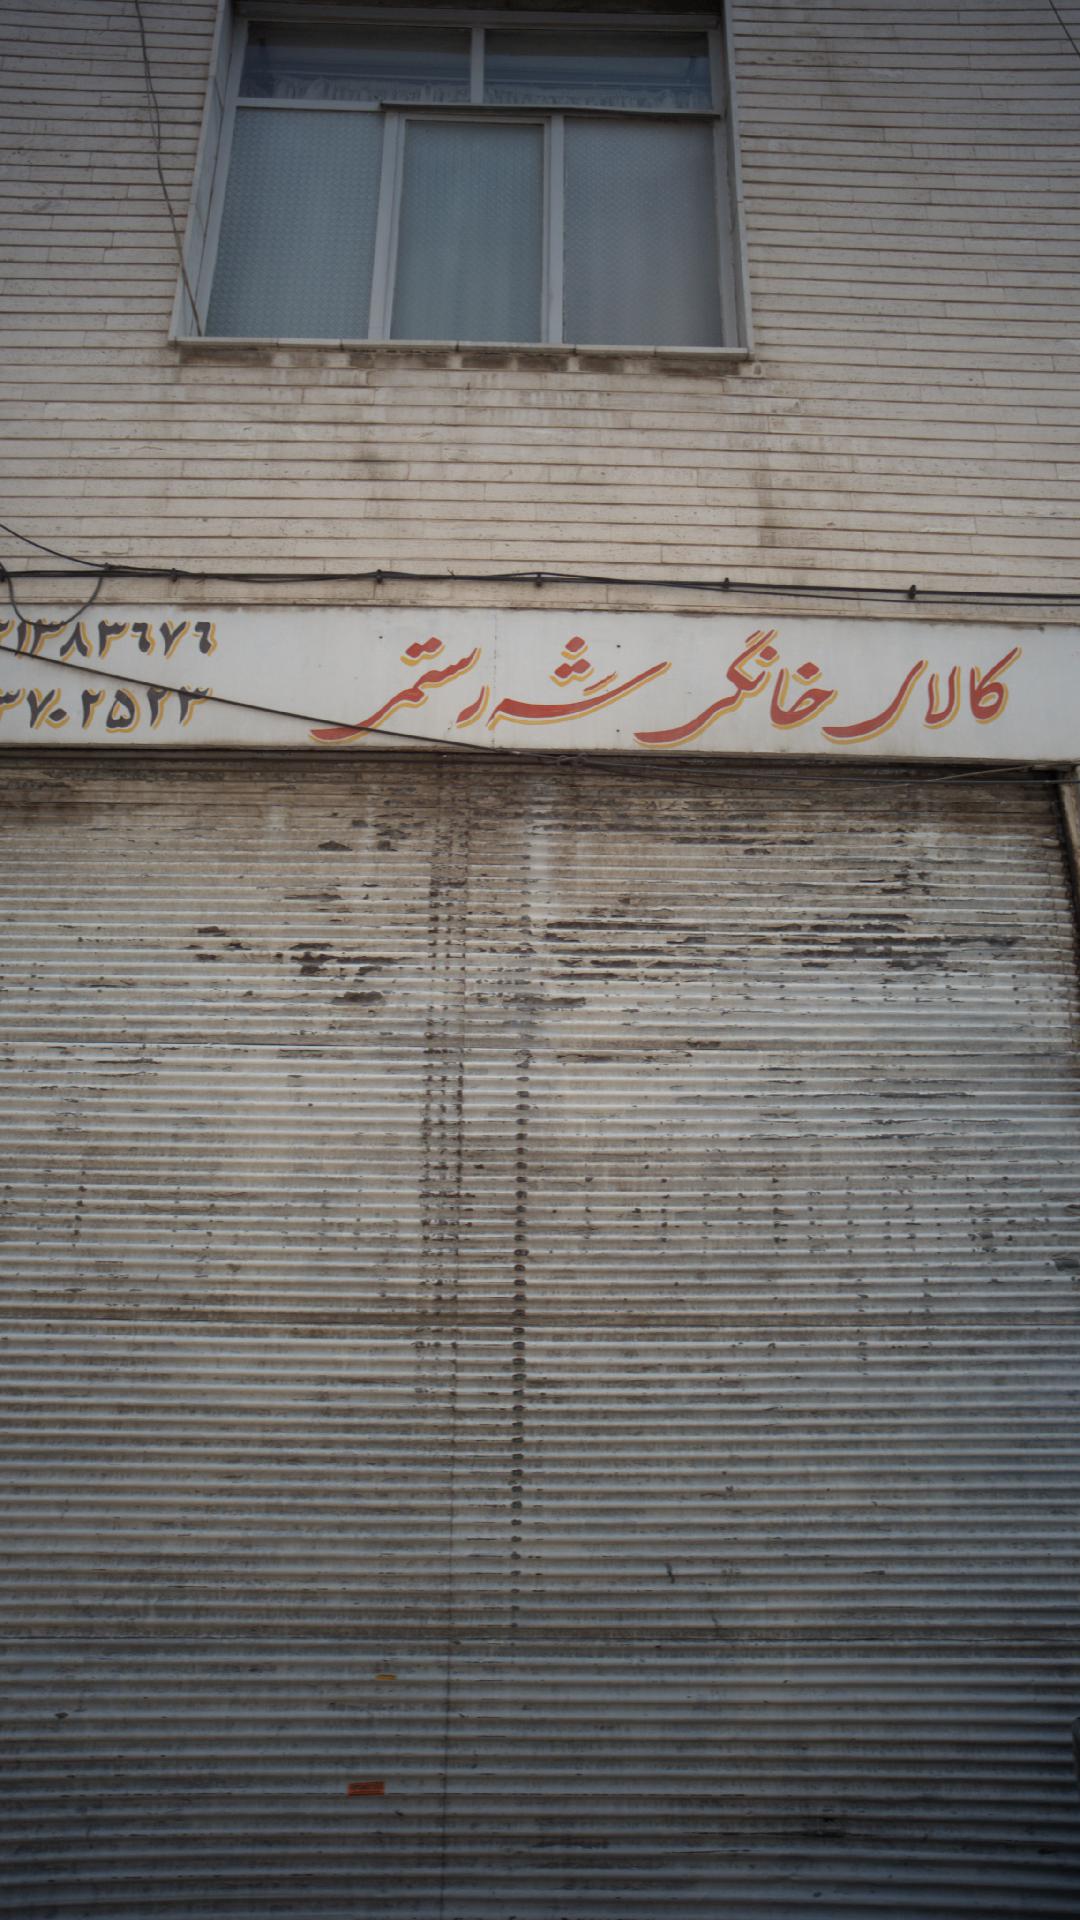 کالای خانگی شه رستمی
۲۱۳۸۳۶۷۶
۳۷۰۲۵۲۳